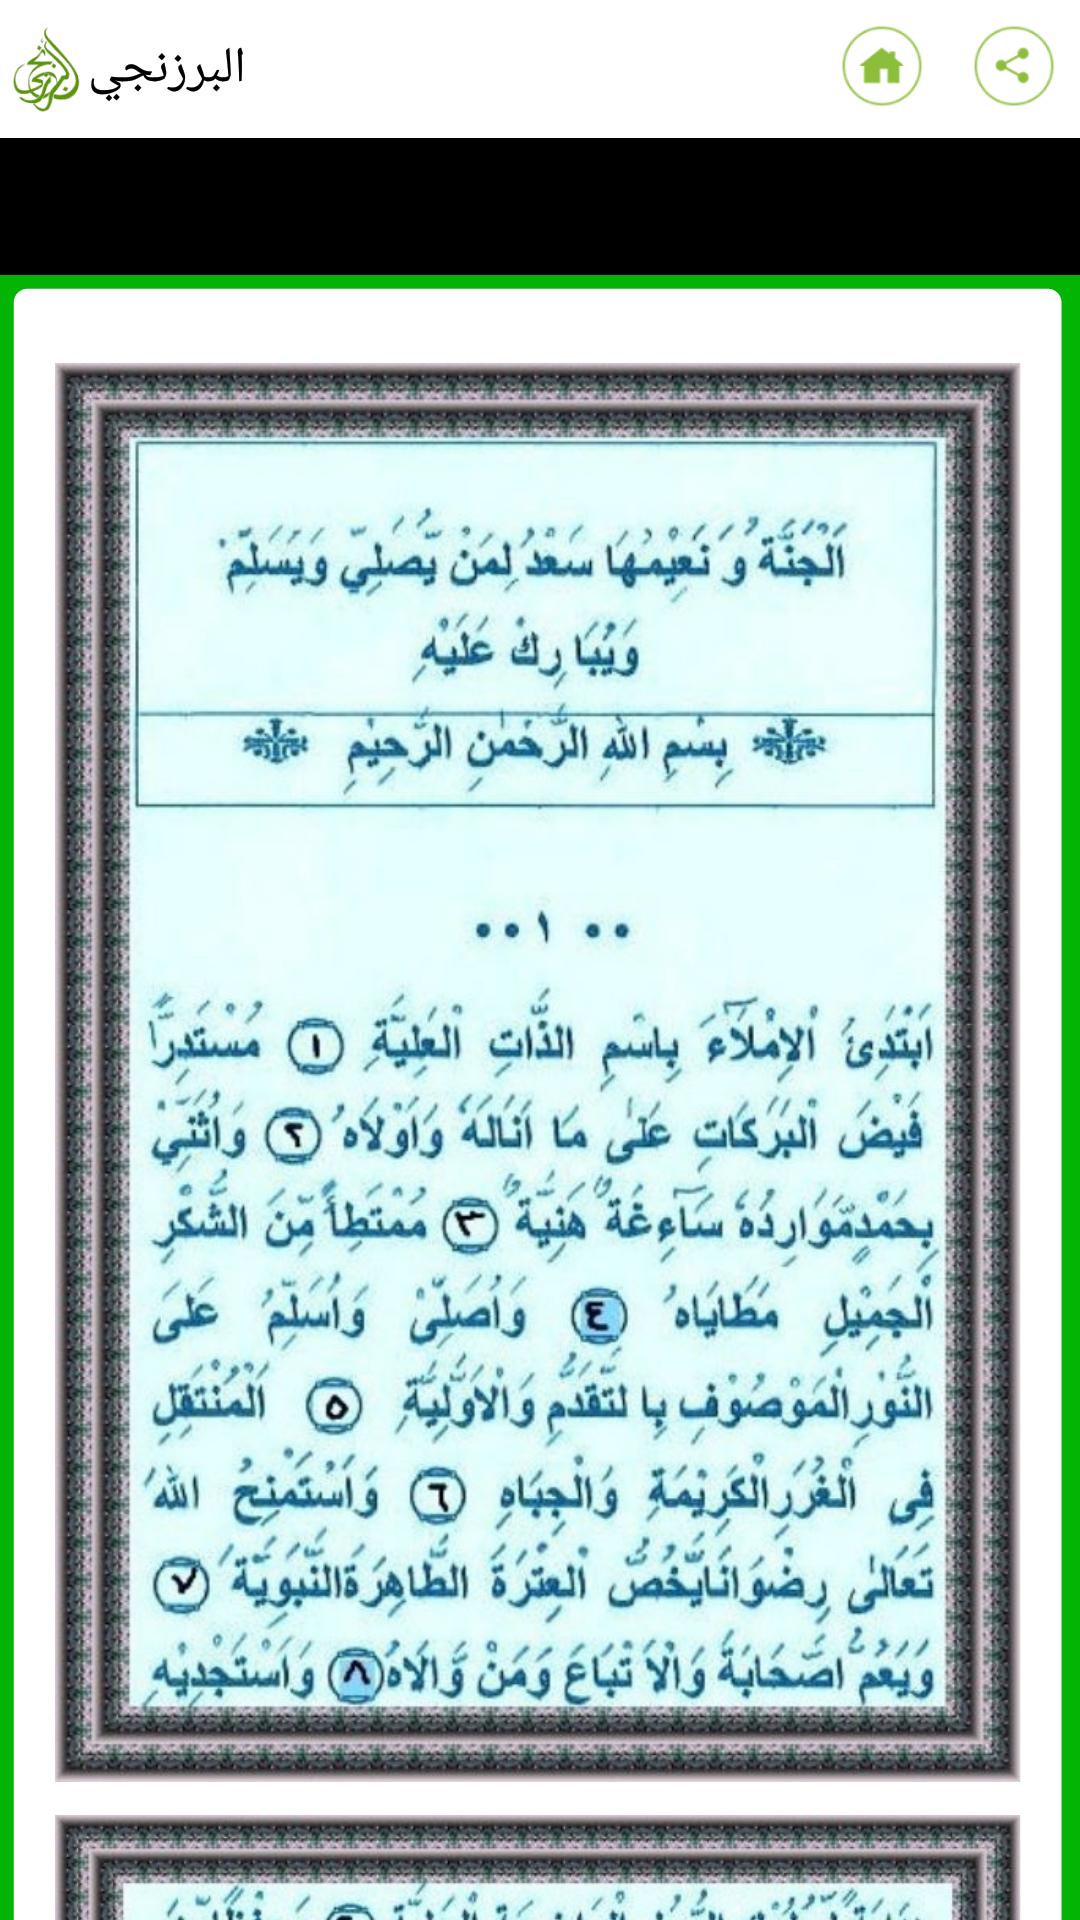 البرزنجي
اَلْجَنَّةُ وَ نَعِيْمُهَا سَعْدٌ لِمَنْ يُّصَلِّيْ وَيُسَلِّمْ
وَيُبَا رِكْ عَلَيْهِ
بِسْمِ اللهِ الرَّحْمٰنِ الرَّحِيْمِ
•• ١ ••
اَبْتَدِئُ اْلاِمْلَآءَ بِاسْمِ الذَّاتِ اْلعَلِيَّةِ ١ مُسْتَدِرًّا
فَيْضَ اْلبَرَكَاتِ عَلىٰ مَا اَنَالَهُ وَاَوْلَاهُ ٢ وَاُثَنِّيْ
بِحَمْدٍمَّوَارِدُهُ سَآءِغَةٌ هَنِيَّةٌ ٣ مُمْتَطِأً مِّنَ الشُّكْرِ
اْلجَمِيْلِ مَطَايَاهُ ٤ وَاُصَلِّىْ وَاُسَلِّمُ عَلىَ
النُّوْرِاْلمَوْصُوْفِ بِا لتَّقَدُّمِ وَاْلاَوَّلِيَّةِ ٥ اَلْمُنْتَقِلِ
فِى اْلغُرَرِاْلكَرِيْمَةِ وَاْلجِبَاهِ ٦ وَاَسْتَمْنِحُ اللهَ
تَعَالىٰ رِضْوَانَايَّخُصُّ اْلعِتْرَةَ الطَّاهِرَةَالنَّبَوِيَّةَ ٧
وَيَعُمُّ اصَّحَابَةَ وَاْلاَ تْبَاعَ وَمَنْ وَّالَاهُ ٨ وَاَسْتَجْدِيْهِ